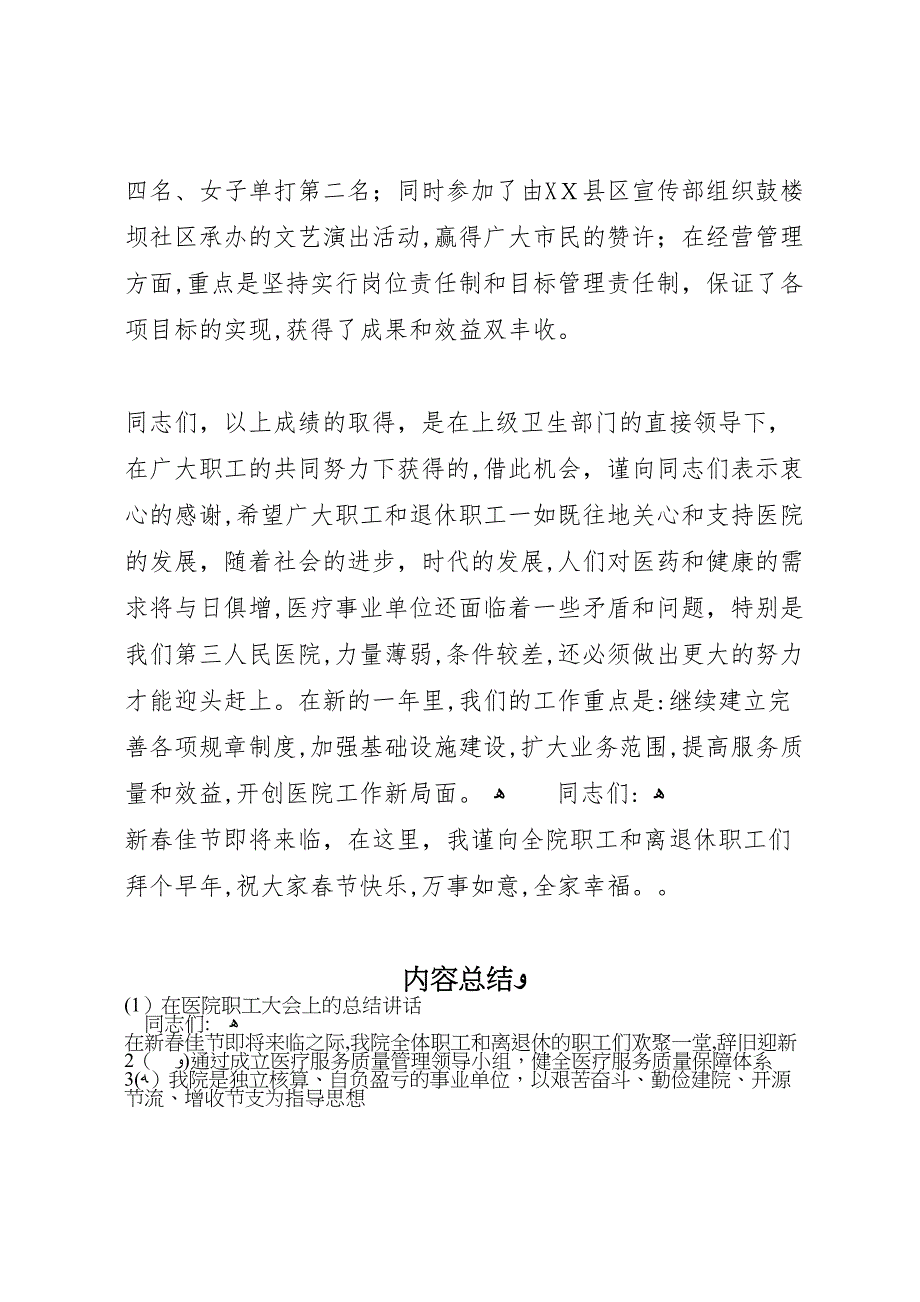 四名、女子单打第二名；同时参加了由XX县区宣传部组织鼓楼
坝社区承办的文艺演出活动,赢得广大市民的赞许；在经营管理
方面,重点是坚持实行岗位责任制和目标管理责任制，保证了各
项目标的实现,获得了成果和效益双丰收。
同志们，以上成绩的取得，是在上级卫生部门的直接领导下，
在广大职工的共同努力下获得的,借此机会，谨向同志们表示衷
心的感谢,希望广大职工和退休职工一如既往地关心和支持医院
的发展，随着社会的进步，时代的发展,人们对医药和健康的需
求将与日俱增,医疗事业单位还面临着一些矛盾和问题，特别是
我们第三人民医院,力量薄弱,条件较差,还必须做出更大的努力
才能迎头赶上。在新的一年里,我们的工作重点是:继续建立完
善各项规章制度,加强基础设施建设,扩大业务范围,提高服务质
量和效益,开创医院工作新局面。 ﻫ 同志们: ﻫ
新春佳节即将来临，在这里，我谨向全院职工和离退休职工们
拜个早年,祝大家春节快乐,万事如意,全家幸福。。
内容总结ﻭ
(1）在医院职工大会上的总结讲话
同志们: ﻫ
在新春佳节即将来临之际,我院全体职工和离退休的职工们欢聚一堂,辞旧迎新
2（ ﻭ)通过成立医疗服务质量管理领导小组，健全医疗服务质量保障体系
3(ﻪ）我院是独立核算、自负盈亏的事业单位，以艰苦奋斗、勤俭建院、开源
节流、增收节支为指导思想